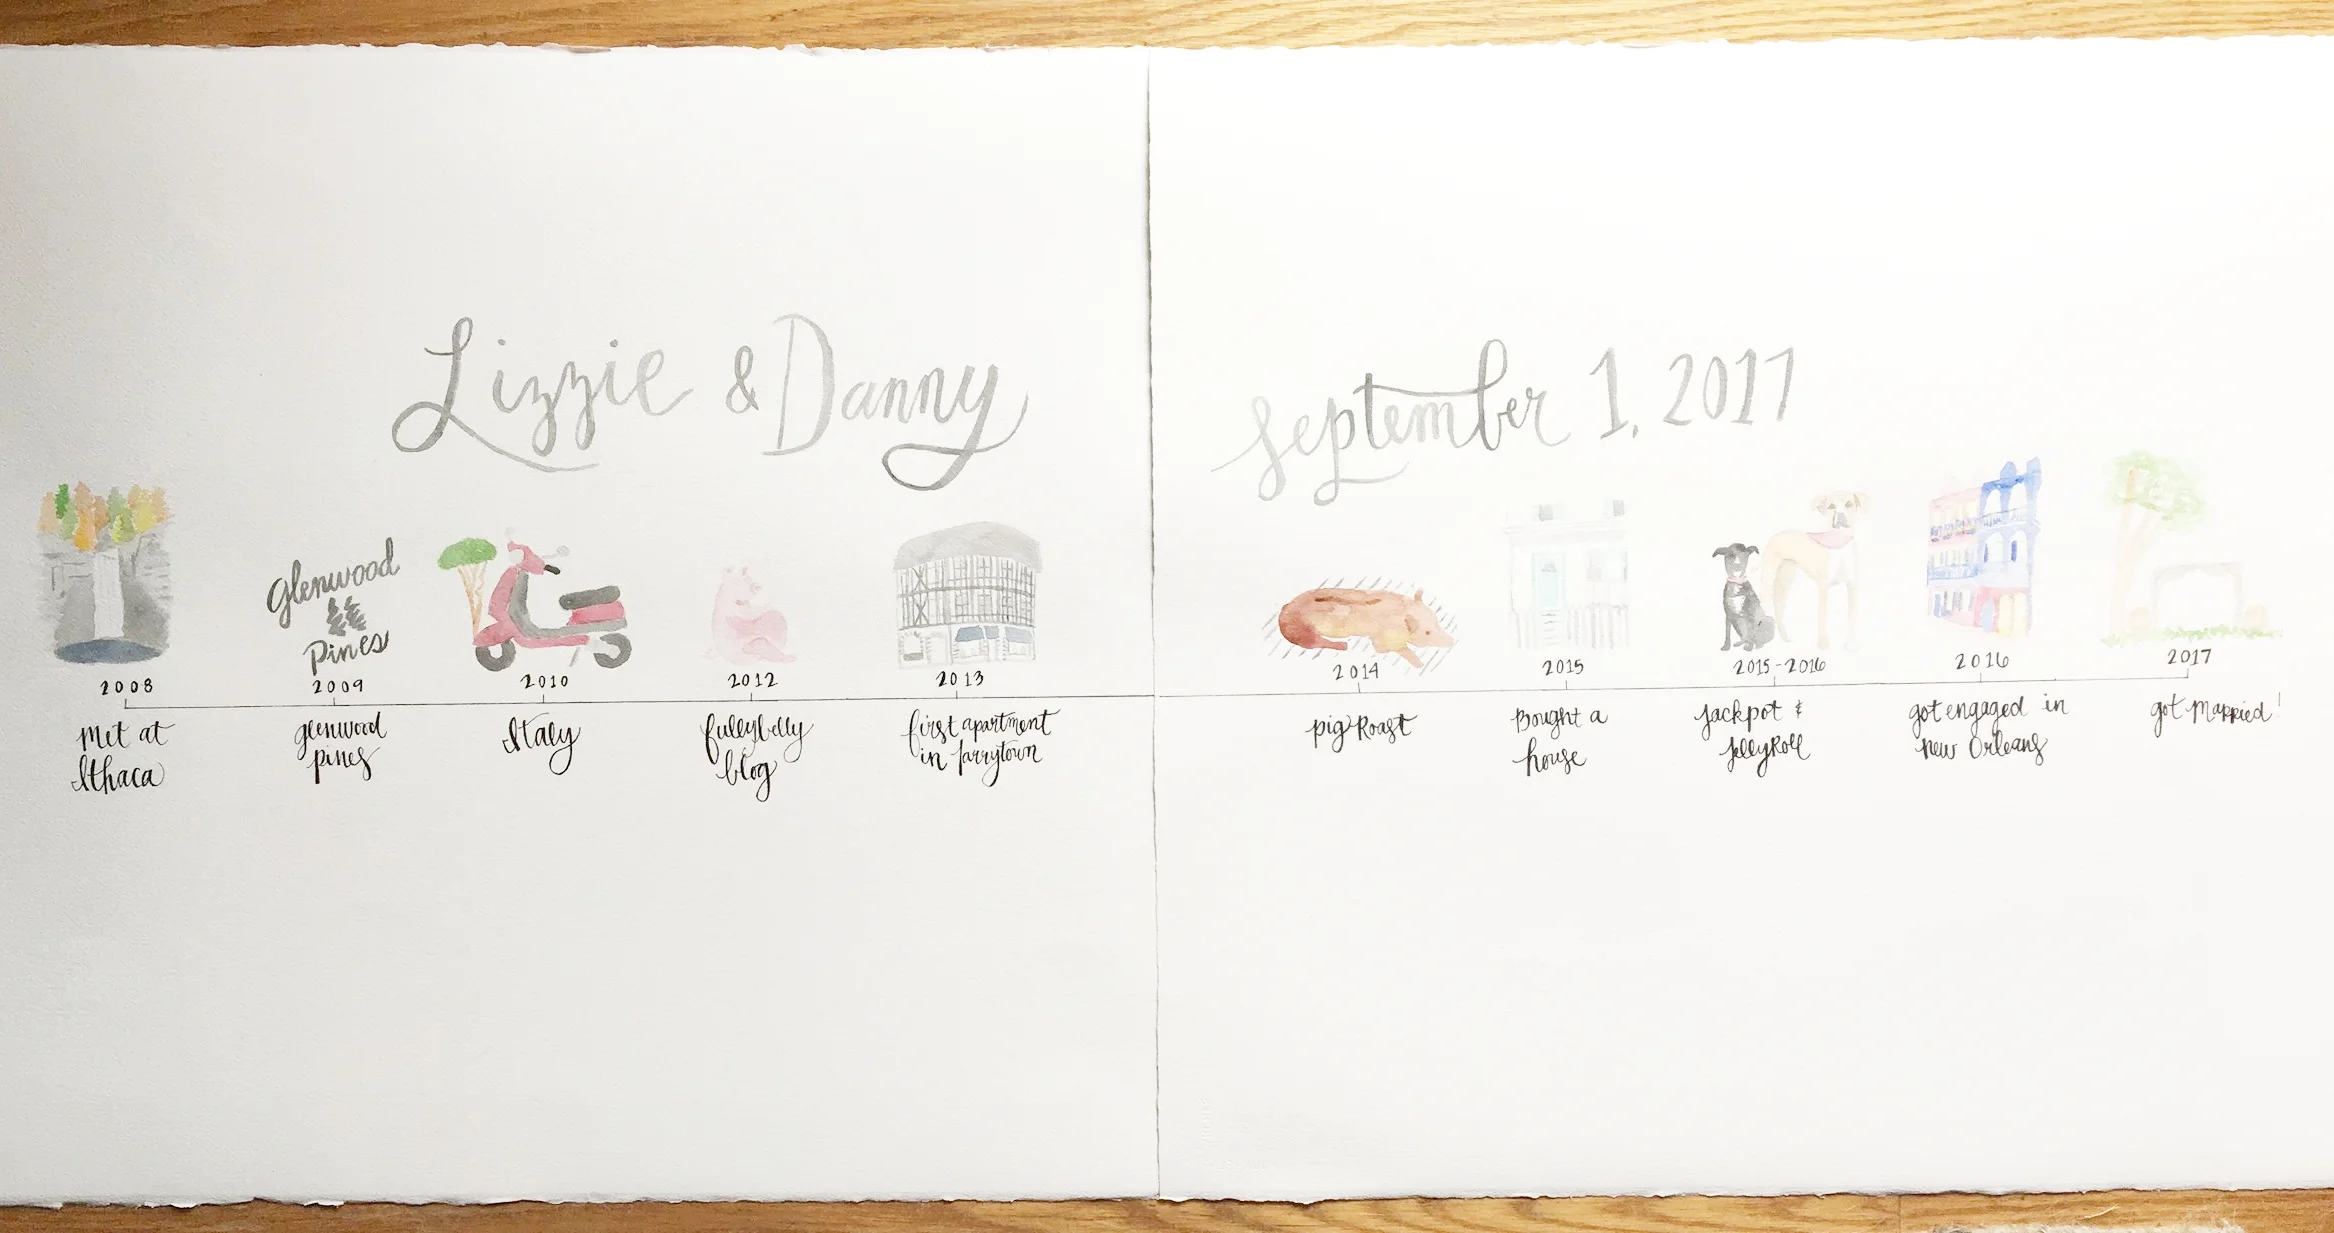 Lizzie & Danny
September 1, 2017
Glenwood
Pines
2008
met at
Ithaca
2009
glenwood
pines
2010
Italy
2012
fullybelly
blog
2013
first apartment
in Tarrytown
2014
pig Roast
2015
Bought a
house
2015-2016
Jackpot &
JellyRoll
2016
got engaged in
New Orleans
2017
got married!